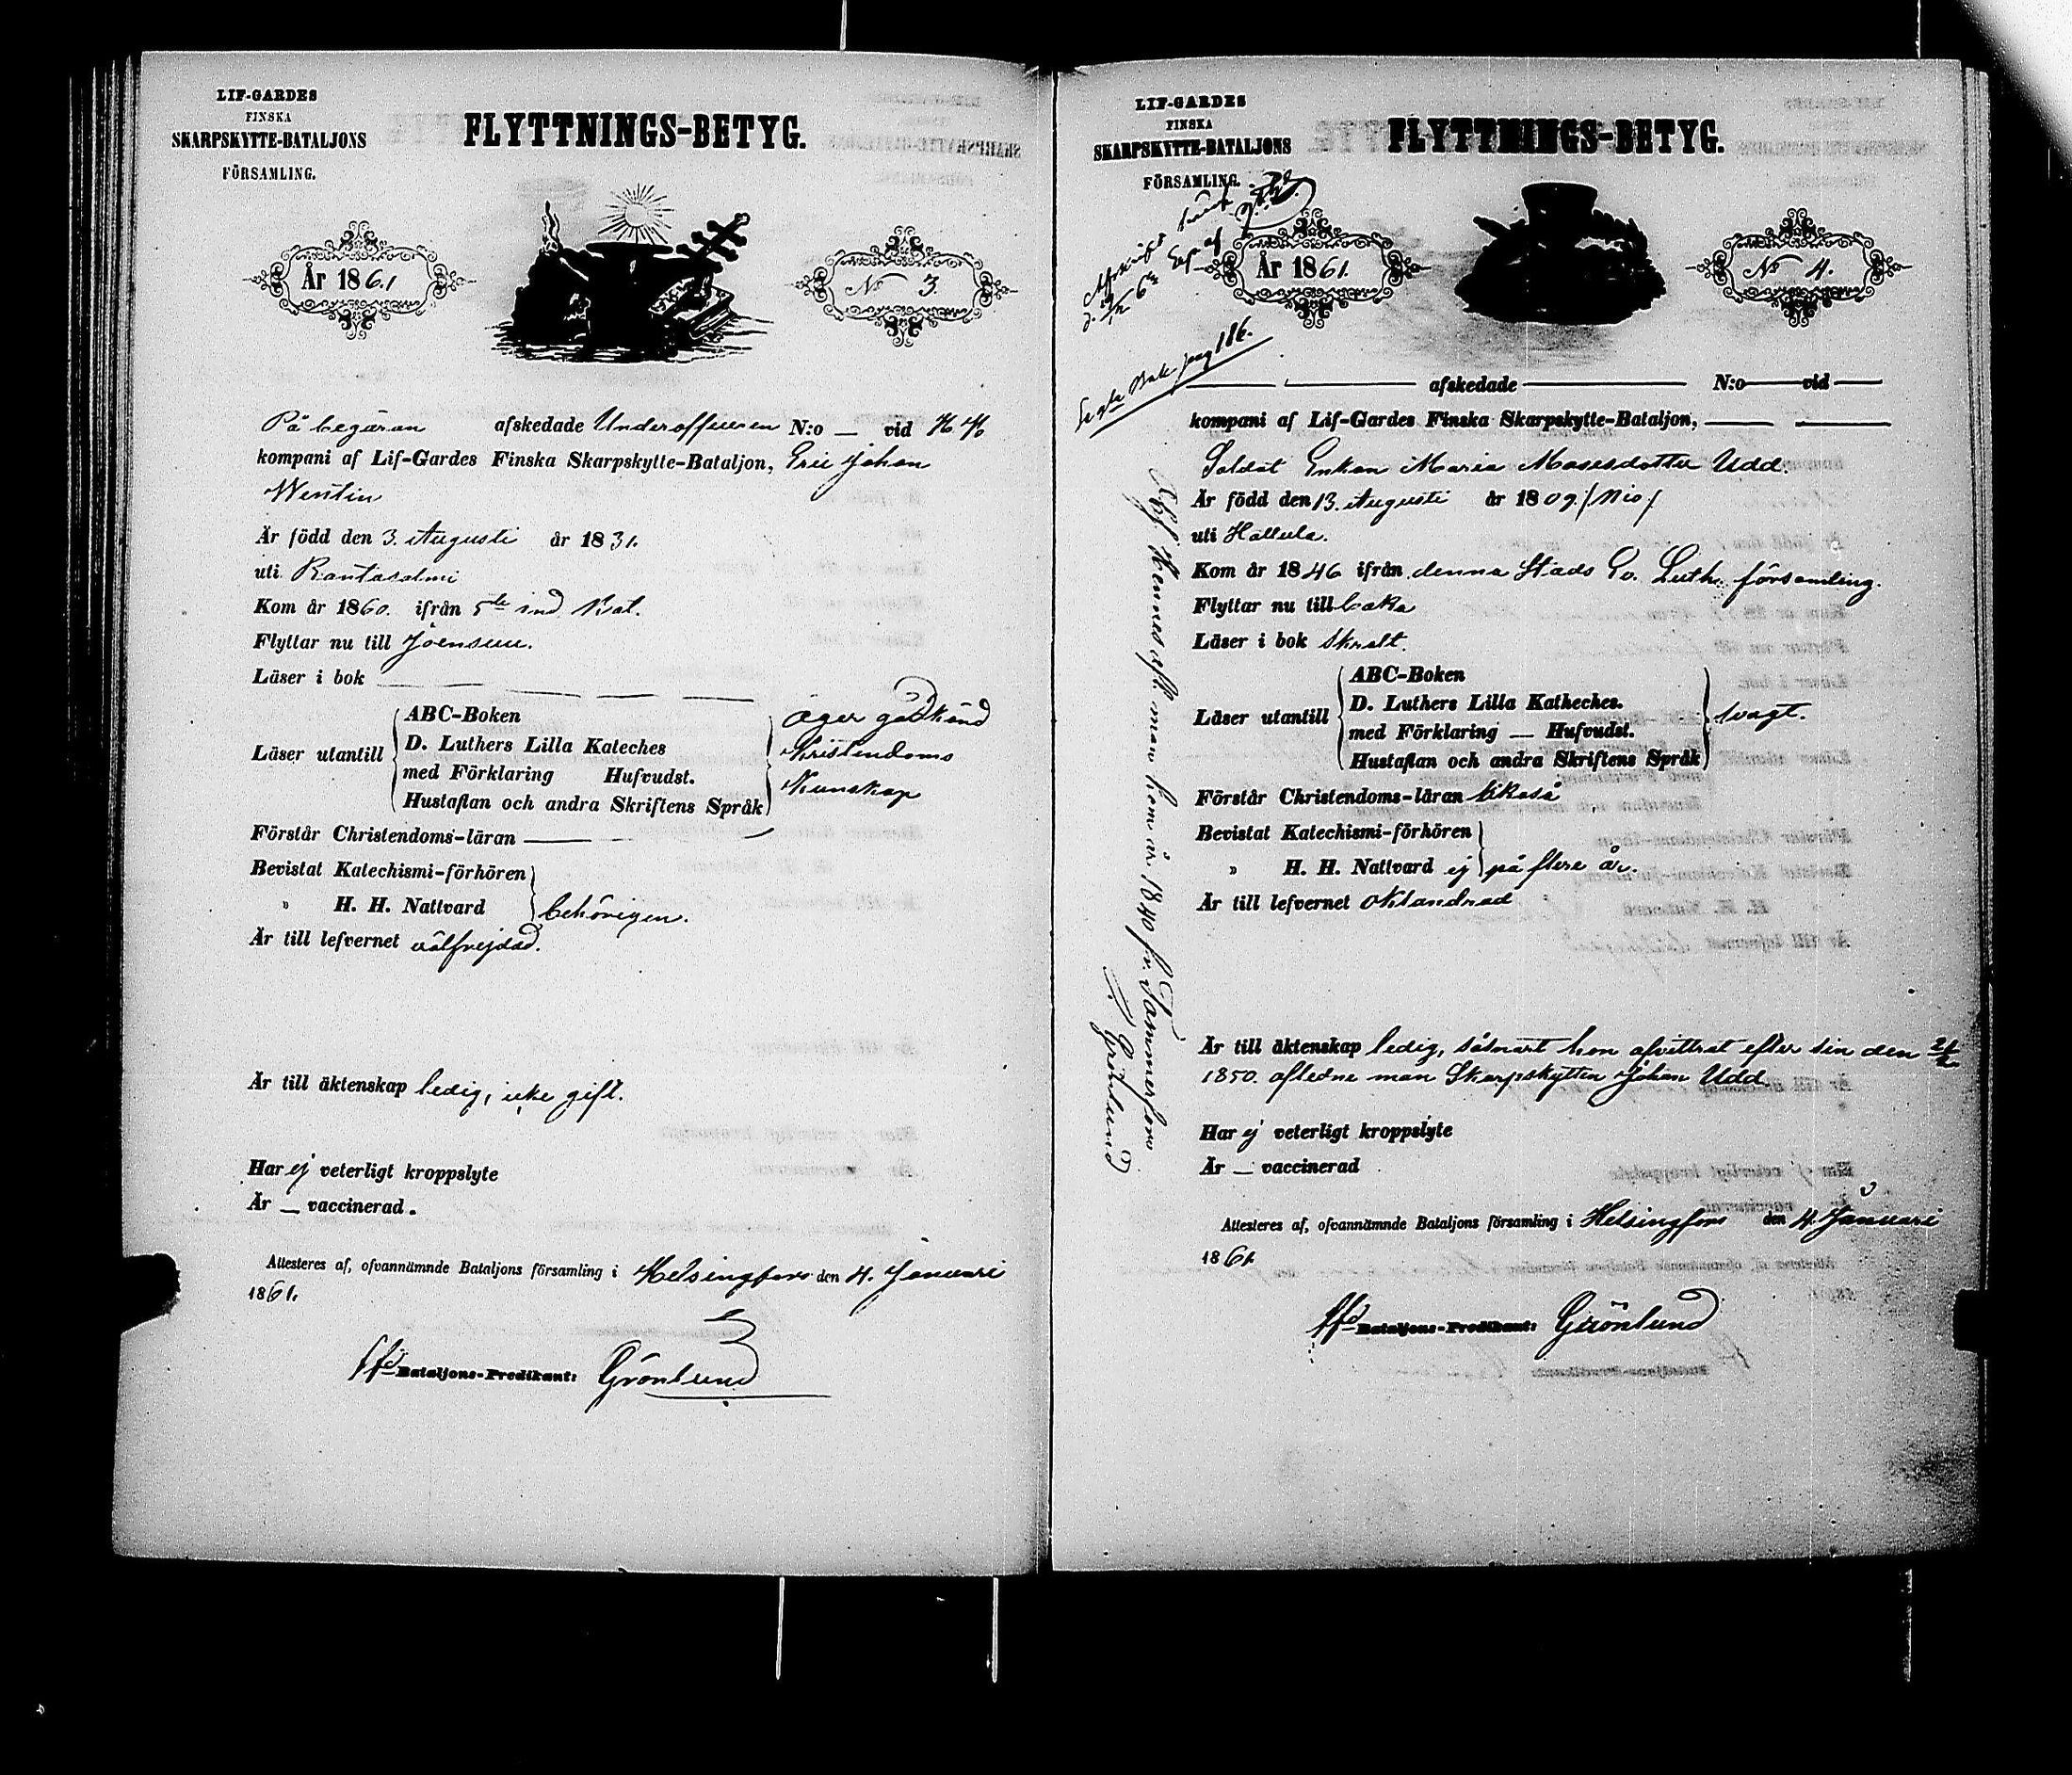 LIF-GARDES
FINSKA
SKARPSKYTTE-BATALJONS
FÖRSAMLING.
FLYTTNINGS-BETYG.
År 1861
No 3.
På begäran afskedade Underofficeren N:o — vid
kompani af Lif-Gardes Finska Skarpskytte-Bataljon, Eric Johan
Wentin
Är född den 3. Augusti år 1831.
uti Rantasalmi
Kom år 1860. ifrån 5te ind Bat.
Flyttar nu till Joensuu.
Läser i bok
Läser utantill
ABC-Boken
D. Luthers Lilla Kateches
med Förklaring Hufvudst.
Hustaflan och andra Skriftens Språk
äger godkänd
Kristendoms
Kunskap
Förstår Christendoms-läran —
Bevistat Katechismi-förhören
" H. H. Nattvard
behörigen.
Är till lefvernet välfrejdad.
Är till äktenskap ledig, icke gift.
Har ej veterligt kroppslyte
Är — vaccinerad.
Attesteres af, ofvannämnde Bataljons församling i Helsingfors den 4. Januari
1861.
Bataljons-Predikant: Grönlund
LIF-GARDES
FINSKA
SKARPSKYTTE-BATALJONS
FÖRSAMLING.
FLYTTNINGS-BETYG.
År 1861.
No 4.
116.
— afskedade — N:o — vid —
kompani af Lif-Gardes Finska Skarpskytte-Bataljon, —
Soldat Enkan Maria Mosesdotter Udd.
Är född den 13. Augusti år 1809. /Nio/
uti Hattula.
Kom år 1846 ifrån denna Stads Ev. Luth. församling.
Flyttar nu till baka
Läser i bok Skralt.
Läser utantill
ABC-Boken
D. Luthers Lilla Katheches.
med Förklaring — Hufvudst.
Hustaflan och andra Skriftens Språk
svagt.
Förstår Christendoms-läran likaså
Bevistat Katechismi-förhören
" H. H. Nattvard ej
på flere år.
Är till lefvernet oklandrad
Är till äktenskap ledig, såsnart hon afvittrat efter sin den
1850. afledne man Skarpskytten Johan Udd
Har ej veterligt kroppslyte
Är — vaccinerad
Attesteres af, ofvannämnde Bataljons församling i Helsingfors den 4. Januari
1861.
Bataljons-Predikant: Grönlund
Hennes afl. man kom år 1840 fr. Tammerfors
Grönlund